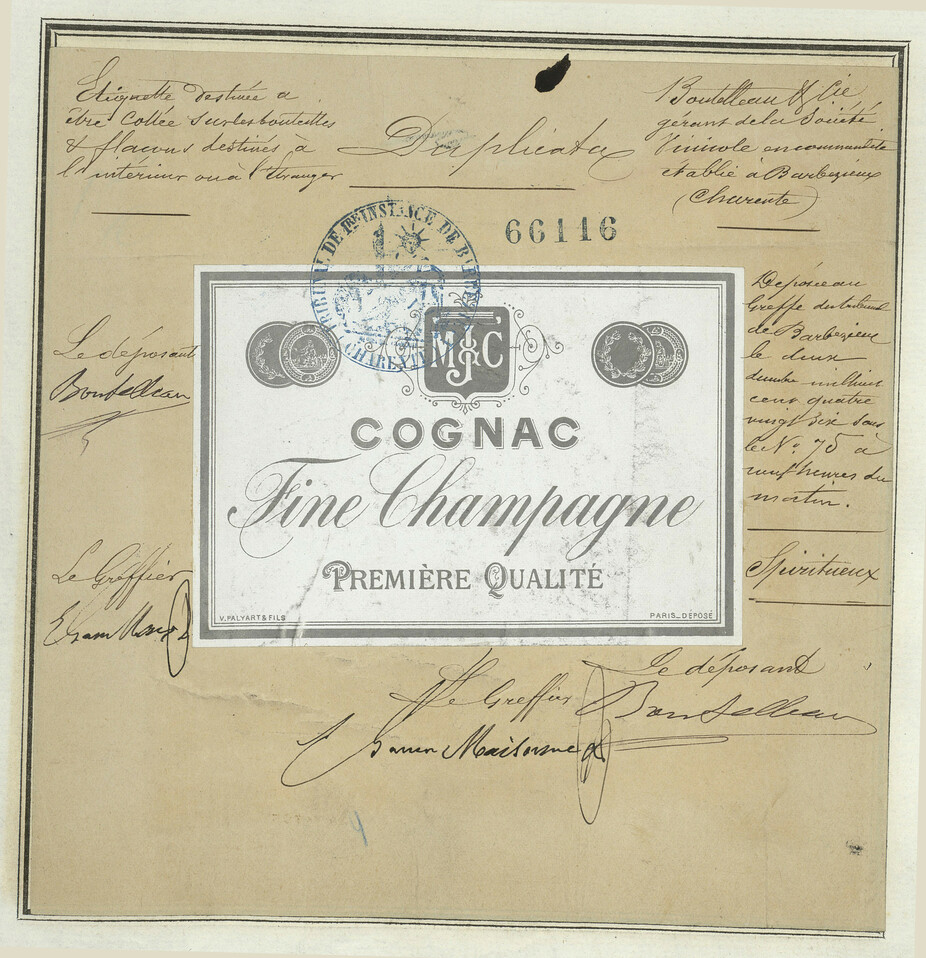 Etiquette destinée a
être Collée sur les bouteilles
& flacons destinés à
l'intérieur ou à l'étranger
Duplicata
Boutelleau & Cie
gérant de la Société
Vinicole en commandite
établie à Barbezieux
(Charente)
66116
TRIBUNAL DE 1re INSTANCE DE
CHARENTE
Le déposant
Boutelleau
Déposé au
Greffe du tribunal
de Barbezieux
le deux
mil huit
cent quatre
vingt six sous
le No. 75 à
neuf heures du
matin.
Spiritueux
M J & C
COGNAC
Fine Champagne
PREMIÈRE QUALITÉ
V. PALYART & FILS
PARIS_DÉPOSÉ
Le Greffier
Le déposant
Boutelleau
Le Greffier